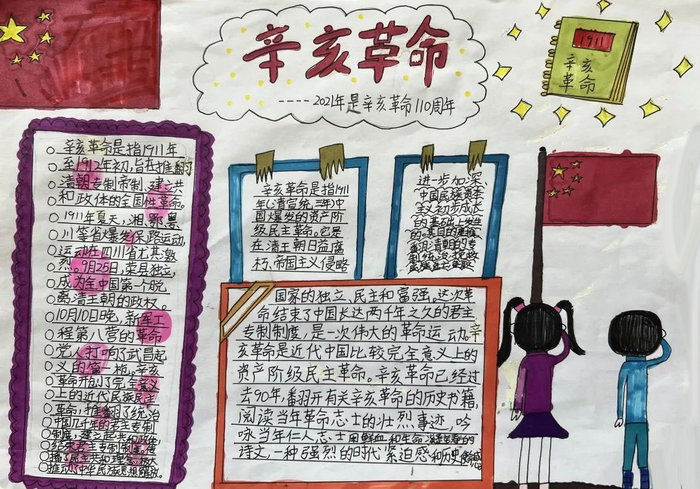 辛亥革命
-----2021年是辛亥革命110周年
1911
辛亥
革命
辛亥革命是指1911年
至1912年初,旨在推翻
清朝专制帝制、建立共
和政体的全国性革命。
1911年夏天,湘、鄂、粤
川等省爆发保路运动,
运动在四川省尤其激
烈。9月25日,荣县独立,
成为全中国第一个脱
离清王朝的政权。
10月10日晚,新军工
程第八营的革命
党人打响了武昌起
义的第一枪。辛亥
革命开创了完全意义
上的近代民族民主
革命,推翻了统治
中国几千年的君主专制
辛亥革命是指1911
年(清宣统三年)中
国爆发的资产阶
级民主革命。它是
在清王朝日益腐
朽、帝国主义侵略
进步加深、
中国民族资本
主义初步成长
的基础上发生
的。其目的是推
翻清朝的专
制统治,挽救
国家的独立、民主和富强。这次革
命结束了中国长达两千年之久的君主
专制制度,是一次伟大的革命运动。辛
亥革命是近代中国比较完全意义上的
资产阶级民主革命。辛亥革命已经过
去90年,翻开有关辛亥革命的历史书籍,
阅读当年革命志士的壮烈事迹,吟
咏当年仁人志士用鲜血和生命
诗文,一种强烈的时代紧迫感和历史